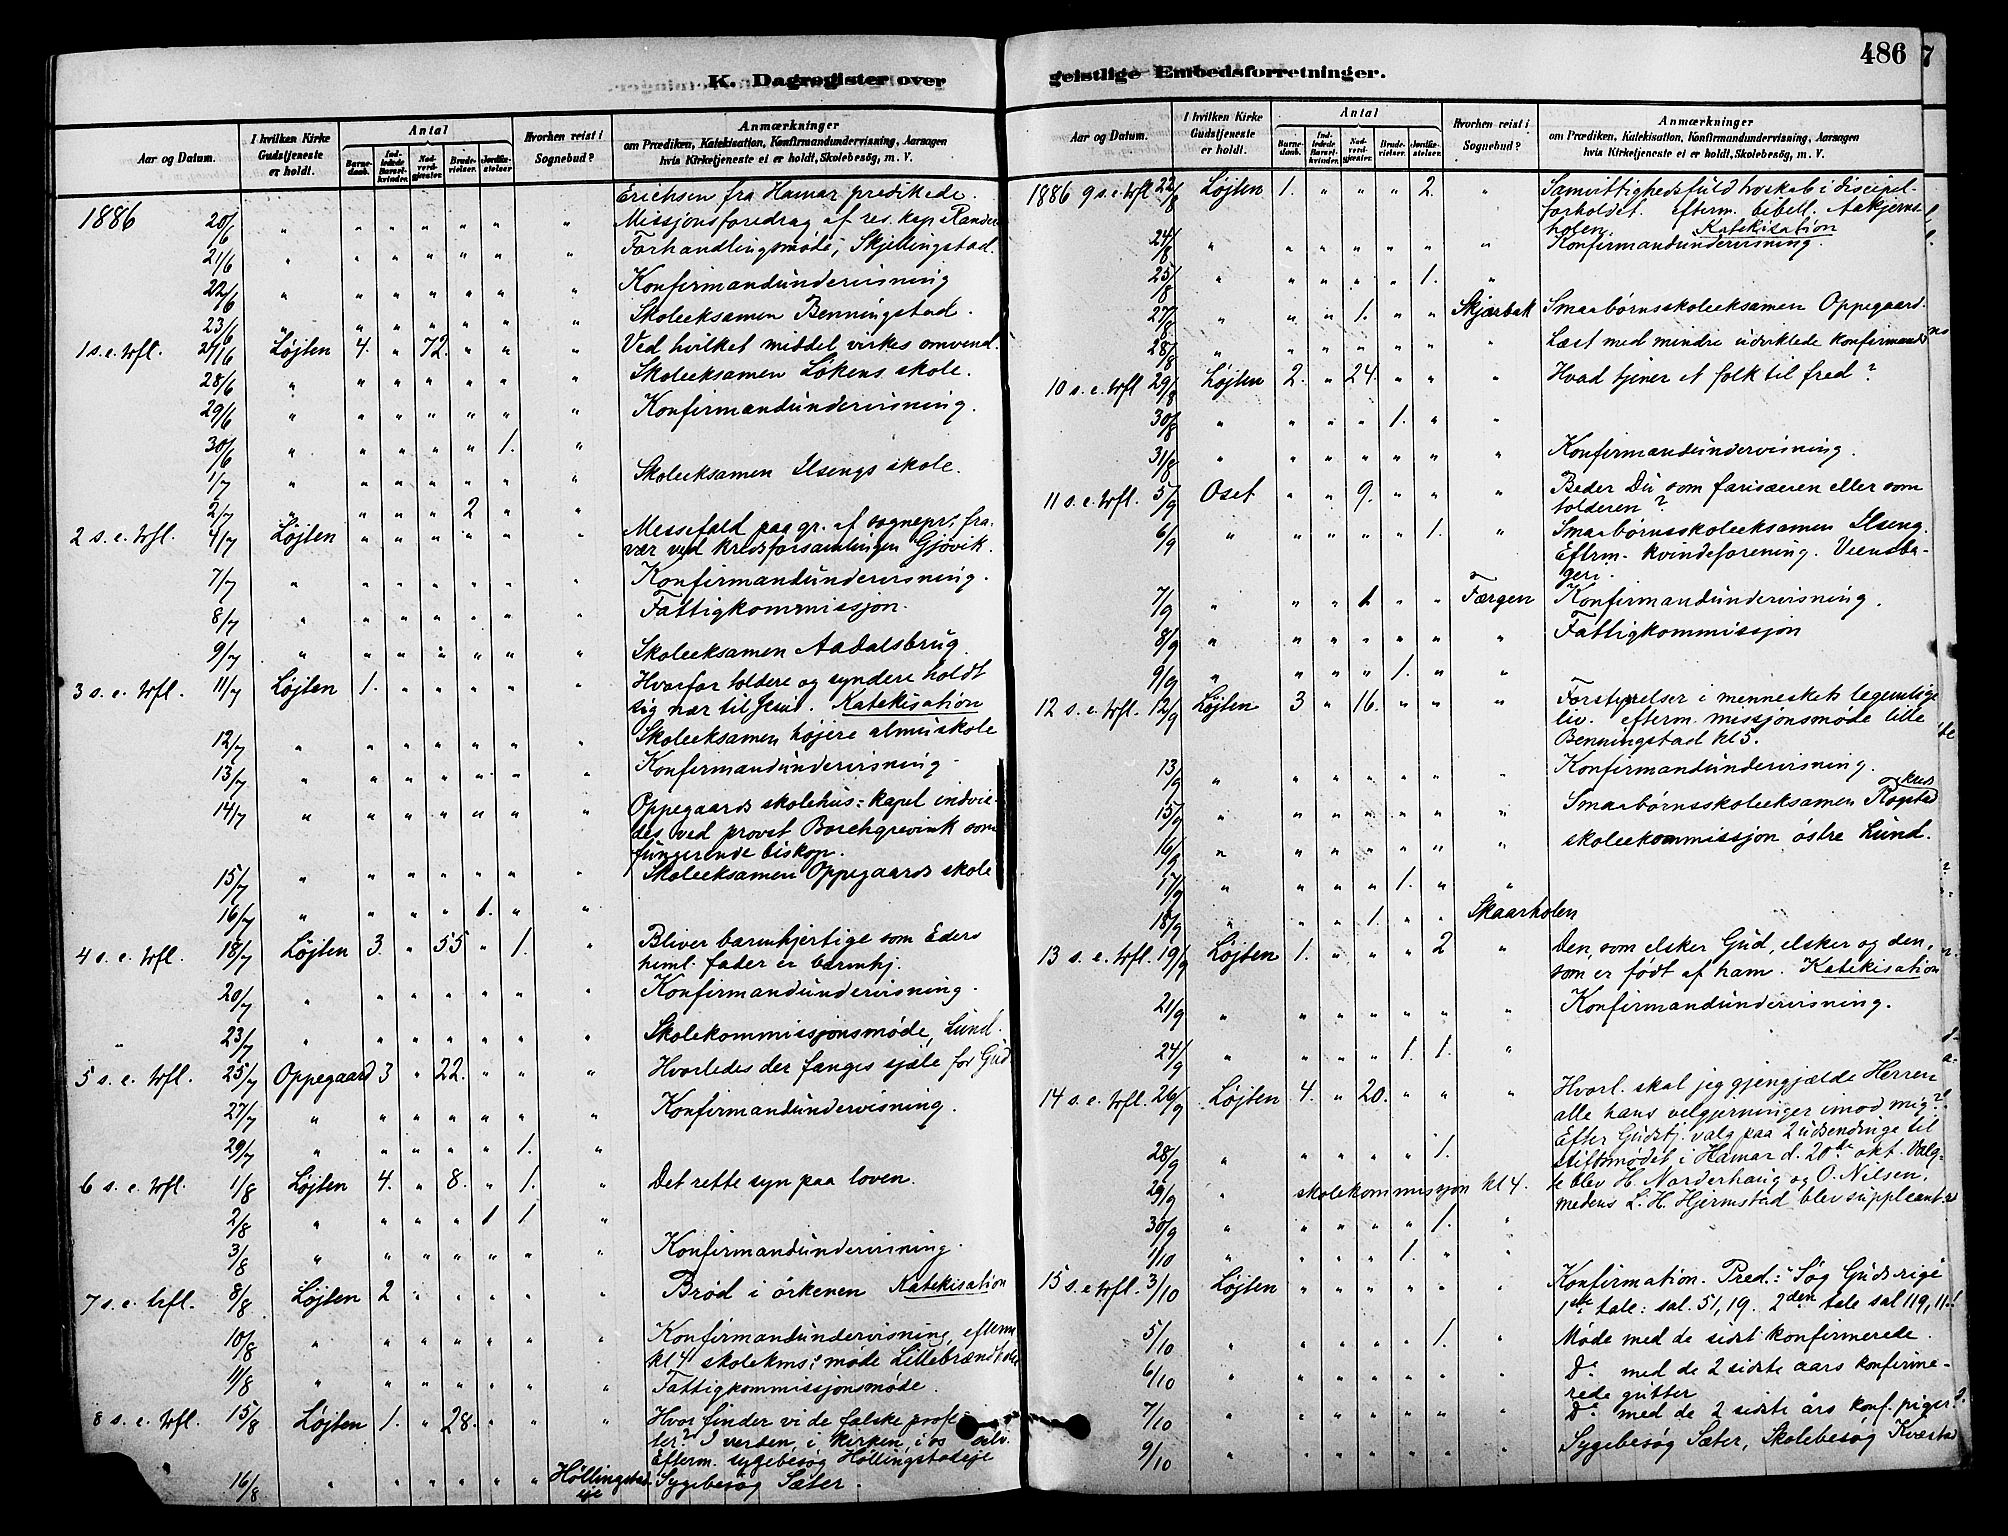 K. Dagregister over
Aar og Datum. | I hvilken Kirke Gudstjeneste er holdt. | Antal | Barnedaab. | Indledede Barselkvinder. | Nadverdgjester. | Brudevielser. | Jordfæstelser | Hvorhen reist i Sognebud? | Anmærkninger om Prædiken, Katekisation, Konfirmandundervisning, Aarsagen hvis Kirketjeneste ei er holdt, Skolebesøg, m. V.
Erichsen fra Hamar predikede.
1886 20/6 " " " " " " " Missjonsforedrag af res. kap. Randers
21/6 " " " " " " " Forhandlingsmøde, Skjelingstad.
22/6 " " " " " " " Konfirmandundervisning
23/6 " " " " " " " Skoleeksamen Benningstad.
1 s. e. trfl. 27/6 Løjten 4. " 72. " " " Ved hvilket middel virkes omvend.
28/6 " " " " " " " Skoleeksamen Løkens skole.
29/6 " " " " " " " Konfirmandundervisning.
30/6 " " " " " 1. "
1/7 " " " " " " " Skoleeksamen Ilsengs skole.
2/7 " " " " 2 " "
2 s. e. trfl. 4/7 Løjten " " " " " " Messefald paa gr. af sognepr.s fra-
vær ved kredsforsamlingen Gjøvik.
7/7 " " " " " " " Konfirmandundervisning.
8/7 " " " " " " " Fattigkommissjon.
9/7 " " " " " " " Skoleeksamen Aadalsbrug.
3 s. e. trfl. 11/7 Løjten 1. " " " " " Hvorfor toldere og syndere holdt
sig nær til Jesus. Katekisation
12/7 " " " " " " " Skoleeksamen højere almuskole
13/7 " " " " " " " Konfirmandundervisning.
14/7 " " " " " " " Oppegaards skolehus=kapel indvie-
des ved provst Borchgrevink som
fungerende biskop.
15/7 " " " " " " " Skoleeksamen Oppegaards skole
16/7 " " " " 1. " "
4 s. e. trfl. 18/7 Løjten 3. " 55 " 1. " Bliver barmhjertige som Eders
himl. fader er barmhj.
20/7 " " " " " " " Konfirmandundervisning.
23/7 " " " " " " " Skolekommissjonsmøde, Lund.
5 s. e. trfl. 25/7 Oppegaard 3 " 22. " " " Hvorledes der fanges sjæle for Gud
27/7 " " " " " " " Konfirmandundervisning.
29/7 " " " " " 1. "
6 s. e. trfl. 1/8 Løjten 4. " 8. " 1. " Det rette syn paa loven.
2/8 " " " " 1 1 "
3/8 " " " " " " " Konfirmandundervisning.
7 s. e. trfl. 8/8 Løjten 2 " " " " " Brød i ørkenen Katekisation
10/8 " " " " " " " Konfirmandundervisning, efterm
kl 4 skolekms: møde Lillebrændholen
11/8 " " " " " " " Fattigkommissjonsmøde.
8 s. e. trfl. 15/8 Løjten 1. " 28. " " " Hvor finder vi de falske profe-
ter? I verden, i kirken, i os selv.
Efterm. sygebesøg Høllingstadeje
16/8 " " " " " " Høllingstadeje Sygebesøg Sæter.
486
geistlige Embedsforretninger.
Aar og Datum. | I hvilken Kirke Gudstjeneste er holdt. | Antal | Barnedaab. | Indledede Barselkvinder. | Nadverdgjester. | Brudevielser. | Jordfæstelser. | Hvorhen reist i Sognebud? | Anmærkninger om Prædiken, Katekisation, Konfirmandundervisning, Aarsagen hvis Kirketjeneste ei er holdt, Skolebesøg, m. V.
1886 9 s. e. trfl. 22/8 Løjten 1. " " " 2. " Samvittighedsfuld troskab i discipel-
forholdet. efterm. bibell. Aakjerns-
holen. Katekisation
24/8 " " " " " " " Konfirmandundervisning.
25/8 " " " " " 1. "
27/8 " " " 1. " " Skjærbæk Smaabørnsskoleeksamen Oppegaard.
28/8 " " " " " " " Læst med mindre udviklede konfirmand
10 s. e. trfl. 29/8 Løjten 2. " 24. " " " Hvad tjener et folk til fred?
30/8 " " " " 1. " "
31/8 " " " " " " " Konfirmandundervisning.
11 s. e. trfl. 5/9 Oset " " 9. " " " Beder Du som farisæeren eller som
tolderen?
6/9 " " " " " 1. " Smaabørnsskoleeksamen Ilseng.
Efterm. kvindeforening. Veensba-
geri.
7/9 " " " 1 " " Færgen Konfirmandundervisning.
8/9 " " " " " " " Fattigkommissjon
9/9 " " " " 1. " "
12 s. e. trfl. 12/9 Løjten 3 " 16. " " " Forstyrrelser i menneskets legemlige
liv. efterm. missjonsmøde lille
Benningstad kl 5.
13/9 " " " " " " " Konfirmandundervisning.
15/9 " " " " " " " Smaabørnsskoleeksamen Rogstad kreds
16/9 " " " " " " " skolekommissjon østre Lund.
17/9 " " " " 1. " "
18/9 " " " 1. " " Skaarholen
13 s. e. trfl. 19/9 Løjten 1. " " " 2 " Den, som elsker Gud, elsker og den,
som er født af ham. Katekisation
21/9 " " " " " " " Konfirmandundervisning.
24/9 " " " " 1. 1. "
14 s. e. trfl. 26/9 Løjten 4. " 20. " " " Hvorl. skal jeg gjengjælde Herren
alle hans velgjerninger imod mig?
Efter Gudstj. valg paa 2 udsendinge til
28/9 " " " " " 1. stiftsmødet i Hamar d. 20de okt. Valg-
29/9 " skolekommissjon kl 4. te blev H. Narderhaug og O. Nilsen,
medens L. H. Hjermstad blev suppleant
30/9 " " " " " 1. "
1/10 " " " " 1. " "
15 s. e. trfl. 3/10 Løjten " " " " " " Konfirmation. Pred.: "Søg Guds rige"
1ste tale: sal. 51, 19. 2den tale sal 119, 11.
5/10 " " " " " 1. " Møde med de sidst konfirmerede.
6/10 " " " " " " " Do med de 2 sidste aars konfirme-
rede gutter
7/10 " " " " " " " Do med de 2 sidste års konf. piger.
9/10 " " " " " " " Sygebesøg Sæter, Skolebesøg Kvæstad